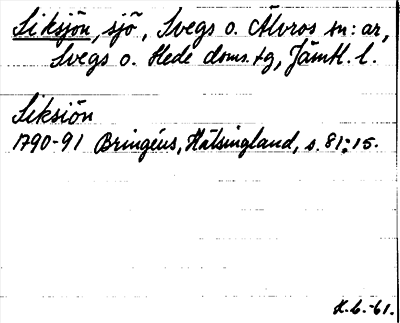 Siksjön, sjö, Svegs o. Älvros sn:ar,
Svegs o. Hede doms.tg, Jämtl. l.
Siksiön
1790-91 Bringéus, Hälsingland, s. 81:15.
K.L.-61.